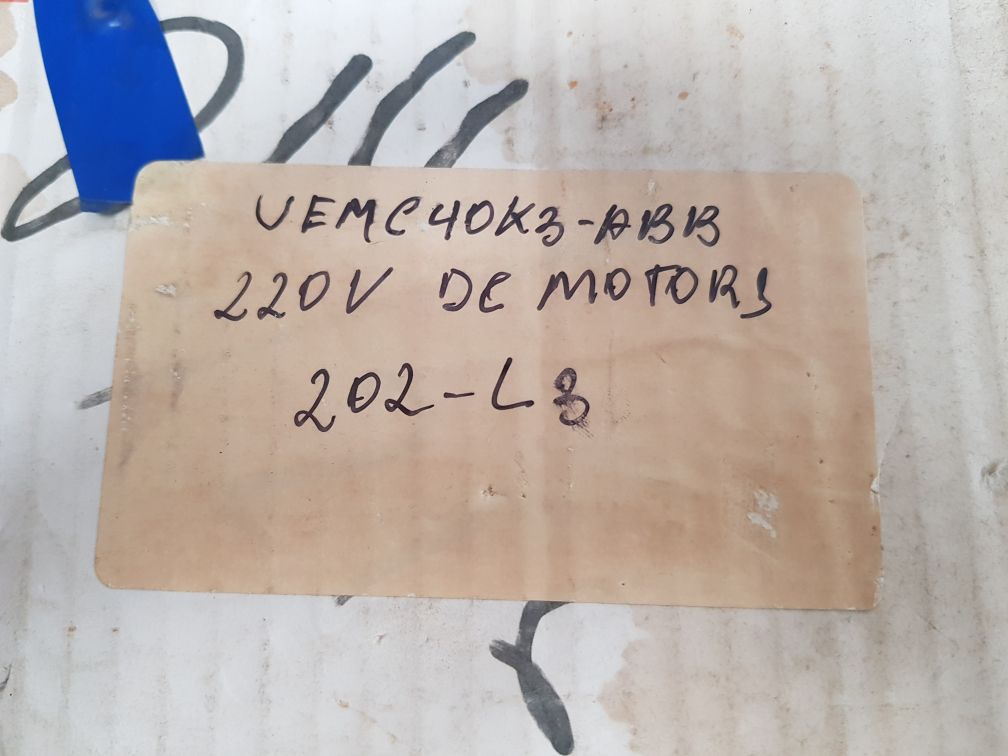 VEMC40K3-ABB
220V DC MOTORS
202-L3